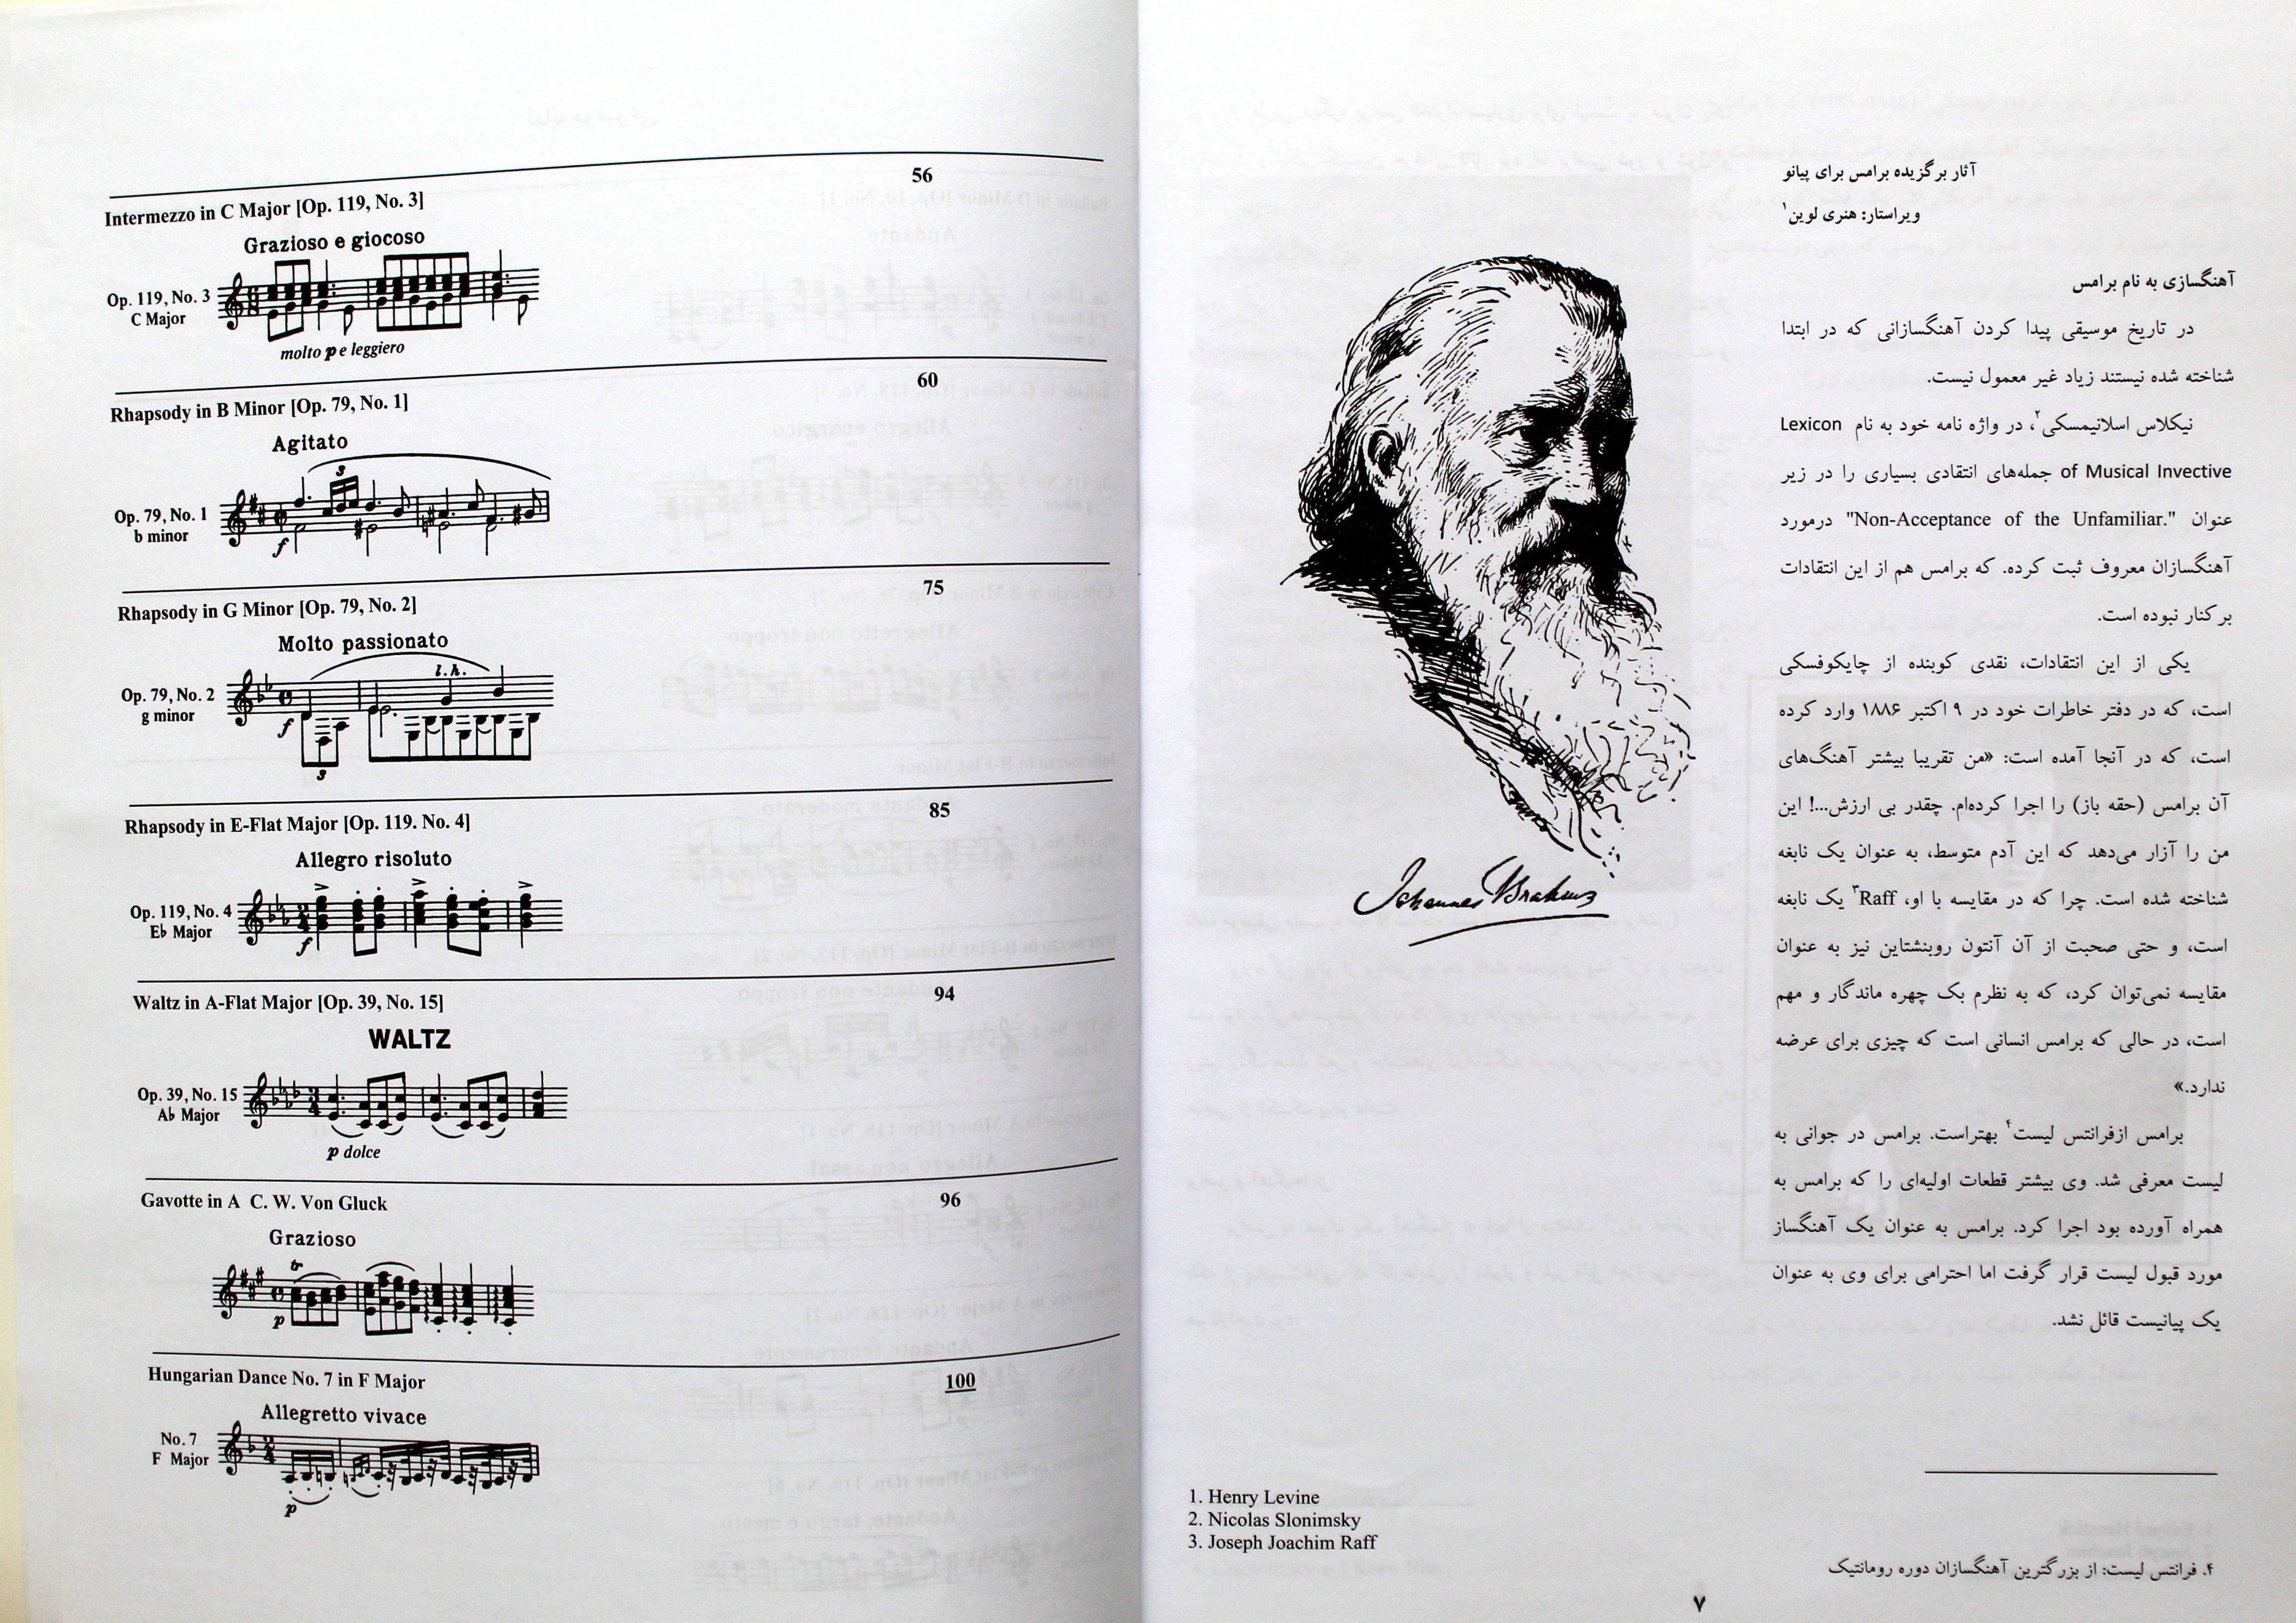 Intermezzo in C Major [Op. 119, No. 3] 56
Grazioso e giocoso
Op. 119, No. 3
C Major
molto p e leggiero
Rhapsody in B Minor [Op. 79, No. 1] 60
Agitato
3
Op. 79, No. 1
b minor
f
Rhapsody in G Minor [Op. 79, No. 2] 75
Molto passionato
l.h.
Op. 79, No. 2
g minor
f
3
Rhapsody in E-Flat Major [Op. 119. No. 4] 85
Allegro risoluto
Op. 119, No. 4
E♭ Major
f
Waltz in A-Flat Major [Op. 39, No. 15] 94
WALTZ
Op. 39, No. 15
A♭ Major
p dolce
Gavotte in A C. W. Von Gluck 96
Grazioso
tr
p
Hungarian Dance No. 7 in F Major 100
Allegretto vivace
No. 7
F Major
p
آثار برگزیده برامس برای پیانو
ویراستار: هنری لوین۱
آهنگسازی به نام برامس
در تاریخ موسیقی پیدا کردن آهنگسازانی که در ابتدا
شناخته شده نیستند زیاد غیر معمول نیست.
نیکلاس اسلانیمسکی۲، در واژه نامه خود به نام Lexicon
of Musical Invective جمله‌های انتقادی بسیاری را در زیر
عنوان "Non-Acceptance of the Unfamiliar." درمورد
آهنگسازان معروف ثبت کرده. که برامس هم از این انتقادات
برکنار نبوده است.
یکی از این انتقادات، نقدی کوبنده از چایکوفسکی
است، که در دفتر خاطرات خود در ۹ اکتبر ۱۸۸۶ وارد کرده
است، که در آنجا آمده است: «من تقریبا بیشتر آهنگ‌های
آن برامس (حقه باز) را اجرا کرده‌ام. چقدر بی ارزش...! این
من را آزار می‌دهد که این آدم متوسط، به عنوان یک نابغه
شناخته شده است. چرا که در مقایسه با او، Raff۳ یک نابغه
است، و حتی صحبت از آن آنتون روبنشتاین نیز به عنوان
مقایسه نمی‌توان کرد، که به نظرم بک چهره ماندگار و مهم
است، در حالی که برامس انسانی است که چیزی برای عرضه
ندارد.»
برامس ازفرانتس لیست۴ بهتراست. برامس در جوانی به
لیست معرفی شد. وی بیشتر قطعات اولیه‌ای را که برامس به
همراه آورده بود اجرا کرد. برامس به عنوان یک آهنگساز
مورد قبول لیست قرار گرفت اما احترامی برای وی به عنوان
یک پیانیست قائل نشد.
Johannes Brahms
1. Henry Levine
2. Nicolas Slonimsky
3. Joseph Joachim Raff
۴. فرانتس لیست: از بزرگترین آهنگسازان دوره رومانتیک
۷